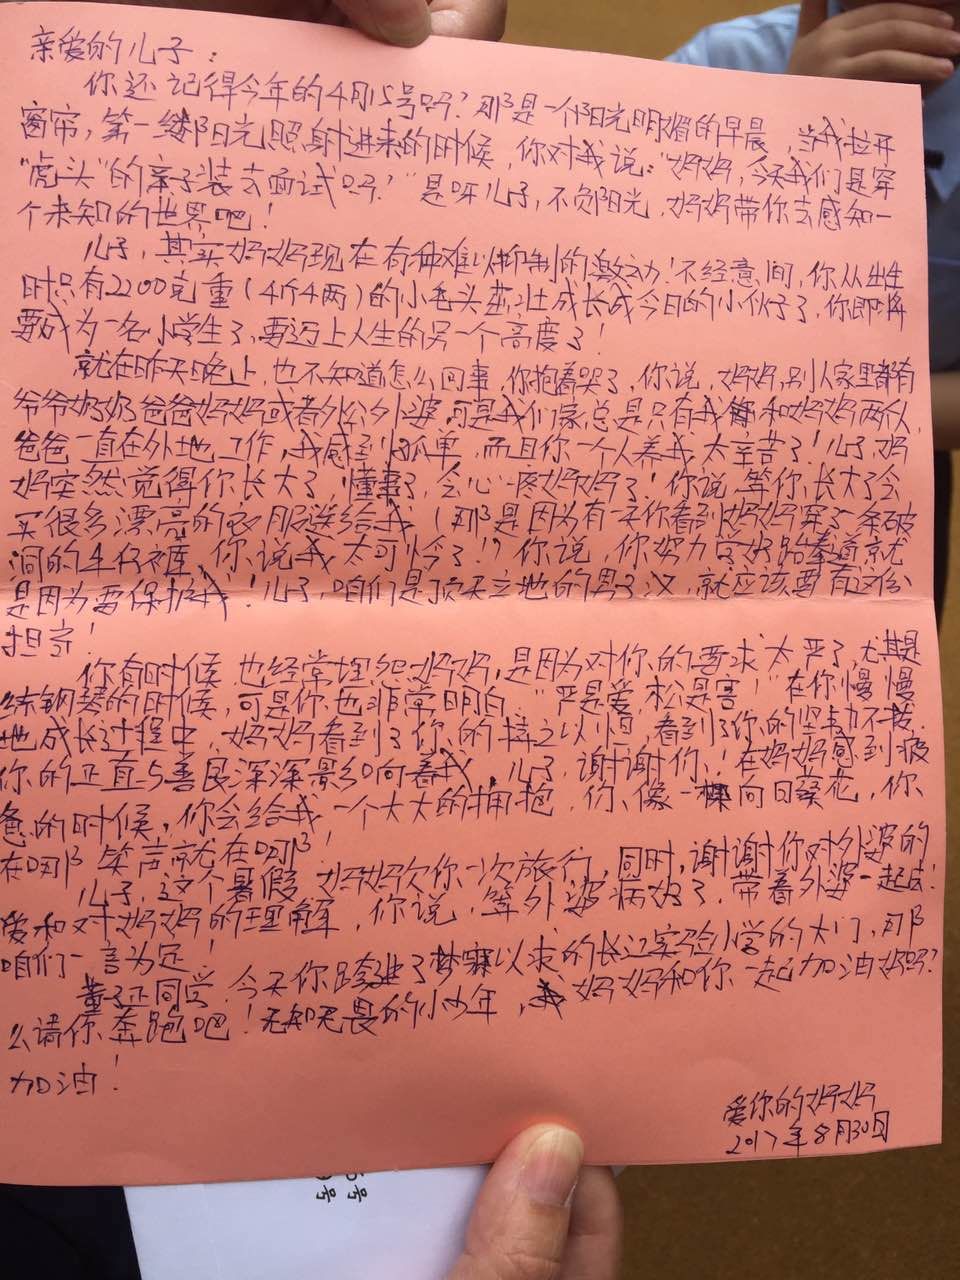 亲爱的儿子：
你还记得今年的4月15号吗？那是一个阳光明媚的早晨，当我拉开
窗帘，第一缕阳光照射进来的时候，你对我说："妈妈，今天我们是穿
"虎头"的亲子装去面试吗？"是呀儿子，不负阳光，妈妈带你去感知一
个未知的世界吧！
儿子，其实妈妈现在有种难以抑制的激动！不经意间，你从出生
时只有2200克重（4斤4两）的小毛头茁壮成长成今日的小伙子了，你即将
要成为一名小学生了，要迈上人生的另一个高度了！
就在昨天晚上，也不知道怎么回事，你抱着哭了，你说，妈妈，别人家里都有
爷爷奶奶爸爸妈妈或者外公外婆，可是我们家总是只有我和妈妈两个人，
爸爸一直在外地工作，我感到孤单，而且你一个人养我太辛苦了！儿子，妈
妈突然觉得你长大了，懂事了，会心疼妈妈了！你说，等你长大了会
买很多漂亮的衣服送给我（那是因为有一天你看到妈妈穿了一条破
洞的牛仔裤，你说我太可怜了！）？你说，你努力学好跆拳道就
是因为要保护我！儿子，咱们是顶天立地的男子汉，就应该要有这份
担当！
你有时候也经常埋怨妈妈，是因为对你的要求太严了，尤其是
练钢琴的时候，可是你也非常明白，"严是爱，松是害！"在你慢慢
地成长过程中，妈妈看到了你的持之以恒，看到了你的坚韧不拔，
你的正直与善良深深影响着我，儿子，谢谢你！在妈妈感到疲
惫的时候，你会给我一个大大的拥抱，你像一棵向日葵花，你
在哪那笑声就在哪那！
儿子，这个暑假，妈妈欠你一次旅行，同时，谢谢你对外婆的
爱和对妈妈的理解，你说，等外婆病好了，带着外婆一起去！
咱们一言为定！
董子正同学，今天你跨进了梦寐以求的长江实验小学的大门，那
么请你奔跑吧！无知无畏的小少年，妈妈和你一起加油好吗？
加油！
爱你的妈妈
2017年8月30日
号
号